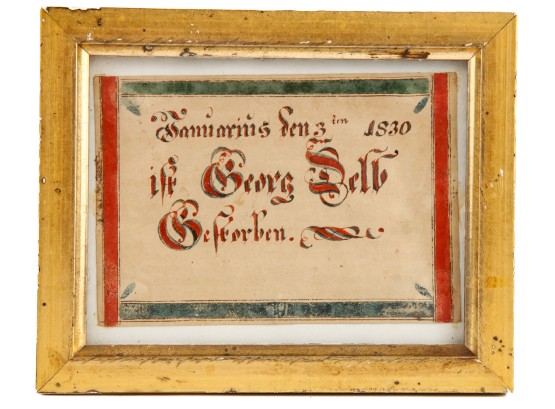 Januarius den 3ten 1830
ist Georg Delb
Gestorben.